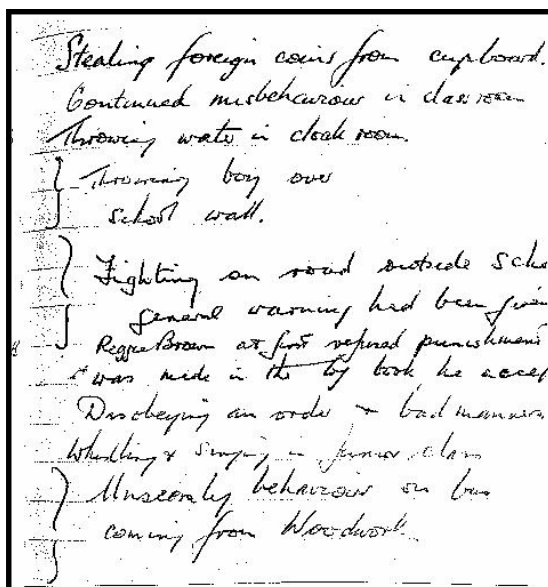 Stealing foreign coins from cupboard.
Continued misbehaviour in class room
Throwing water in cloak room.
Throwing boy over
school wall.
Fighting on road outside Scho
general warning had been given
Reggie Brown at first refused punishment
was made in the log book he accep
Disobeying an order + bad manners
Whistling & Singing in junior class
Unseemly behaviour on bus
coming from Woodwork.